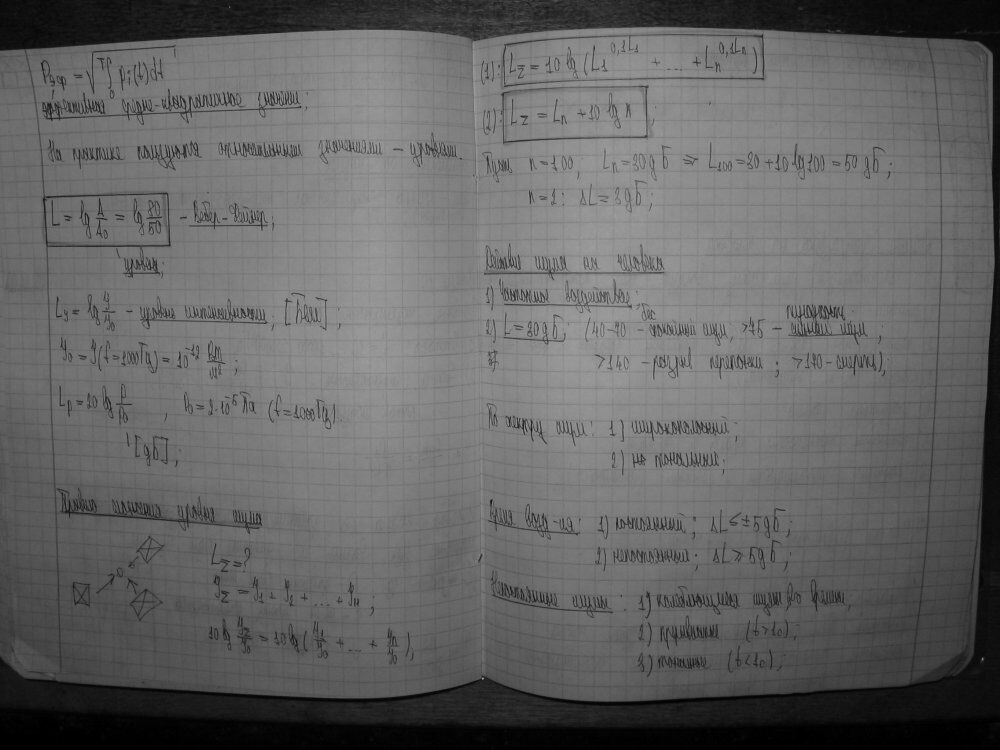 Pэф = √(∫₀ᵀ pi(t)dt
эффективное средне-квадратичное значение;
На практике пользуются относительными значениями – уровнем.
L = lg A/A₀ = lg 80/50 – Вебер-Фехнер;
уровень;
L_У = lg У/У₀ – уровень интенсивности, [Бел];
У₀ = У(f=1000Гц) = 10⁻¹² Вт/м²;
Lp = 20 lg P/P₀ , P₀ = 2·10⁻⁵ Па (f=1000Гц).
[дБ];
Правила сложения уровня шума
L_Σ = ?
У_Σ = У₁ + У₂ + ... + Уn ;
10 lg У_Σ/У₀ = 10 lg (У₁/У₀ + ... + Уn/У₀);
(1): L_Σ = 10 lg (L₁^0,1L₁ + ... + Ln^0,1Ln)
(2): L_Σ = Ln + 10 lg n ;
Пусть n=100; Ln = 30дБ ⇒ L₁₀₀ = 30 + 10 lg100 = 50 дБ;
n=2: ΔL = 3дБ;
Действие шума на человека
1) Частотное воздействие;
2) L = 80дБ; (40-70 – спокойный шум, >75 – шум,
>140 – разрыв перепонки ; >170 – смерть);
По спектру шум: 1) широкополосный;
2) тональный;
Время возд-ия: 1) постоянный ; ΔL ≤ ±5дБ;
2) непостоянный ; ΔL ≥ 5дБ;
Непостоянные шумы : 1) колеблющиеся шумы во времени,
2) прерывистые (t>1с);
3) (t<1с);